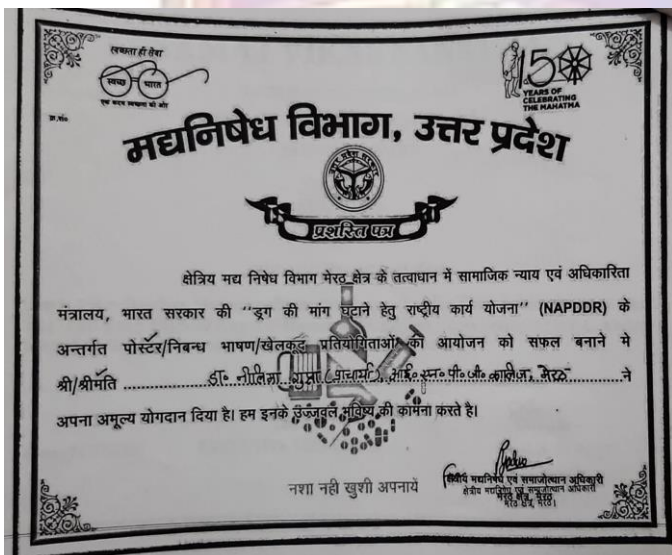 स्वच्छता ही सेवा
स्वच्छ भारत
एक कदम स्वच्छता की ओर
150
YEARS OF
CELEBRATING
THE MAHATMA
क्र.सं०
मद्यनिषेध विभाग, उत्तर प्रदेश
प्रशस्ति पत्र
क्षेत्रिय मद्य निषेध विभाग मेरठ क्षेत्र के तत्वाधान में सामाजिक न्याय एवं अधिकारिता
मंत्रालय, भारत सरकार की "ड्रग की मांग घटाने हेतु राष्ट्रीय कार्य योजना" (NAPDDR) के
अन्तर्गत पोस्टर/निबन्ध भाषण/खेलकूद प्रतियोगिताओं की आयोजन को सफल बनाने मे
श्री/श्रीमति डा० नीलिमा गुप्ता (प्राचार्या), आई० एन० पी० जी० कालिज, मेरठ ने
अपना अमूल्य योगदान दिया है। हम इनके उज्जवल भविष्य की कामना करते है।
नशा नही खुशी अपनायें
क्षेत्रीय मद्यनिषेध एवं समाजोत्थान अधिकारी
क्षेत्रीय मद्यनिषेध एवं समाजोत्थान अधिकारी
मेरठ क्षेत्र, मेरठ
मेरठ क्षेत्र, मेरठ।